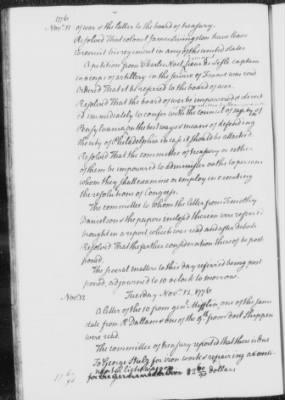 1776
Novr. 11 of war & the letter to the board of treasury.
Resolved That colonel James Livingston have leave
to recruit his regiment in any of the united states
A petition from Charles Noel captain
in a corps of artillery in the service of France was read
Ordered That it be referred to the board of war.
Resolved That the board of war be empowered & directed
immediately to confer with the council of safety of
Pensylvania on the best ways & means of defending
the city of Philadelphia in case it should be attacked
Resolved That the committee of treasury or either
of them be impowered to administer oaths to persons
whom they shall examine or employ in executing
the resolutions of Congress.
The committee to whom the letter from Timothy
Danielson & the papers enclosed therein were referred
brought in a report which was read and after debate
Resolved That the farther consideration thereof be post
poned.
The several matters to this day referred being post
poned, adjourned to 10 o'clock to morrow.
Novr. 12 Tuesday Novr. 12, 1776
A letter of the 10 from genl. Mifflin, one of the same
date from R Dallam & one of the 9th from
were read.
The committee of treasury reported that there is due
To George for iron work & repairing
dollars